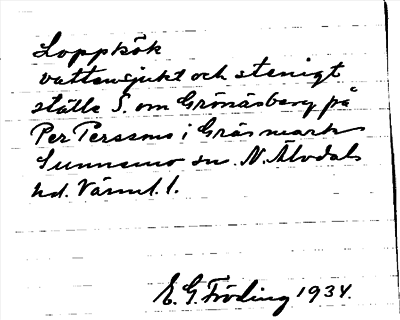 Loppkök
vattensjukt och stenigt
ställe S. om Grönäsberg på
Per Perssons i Gräsmark
Sunnemo sn. N. Älvdals
hd. Värml. l.
E. G. Fröding 1934.